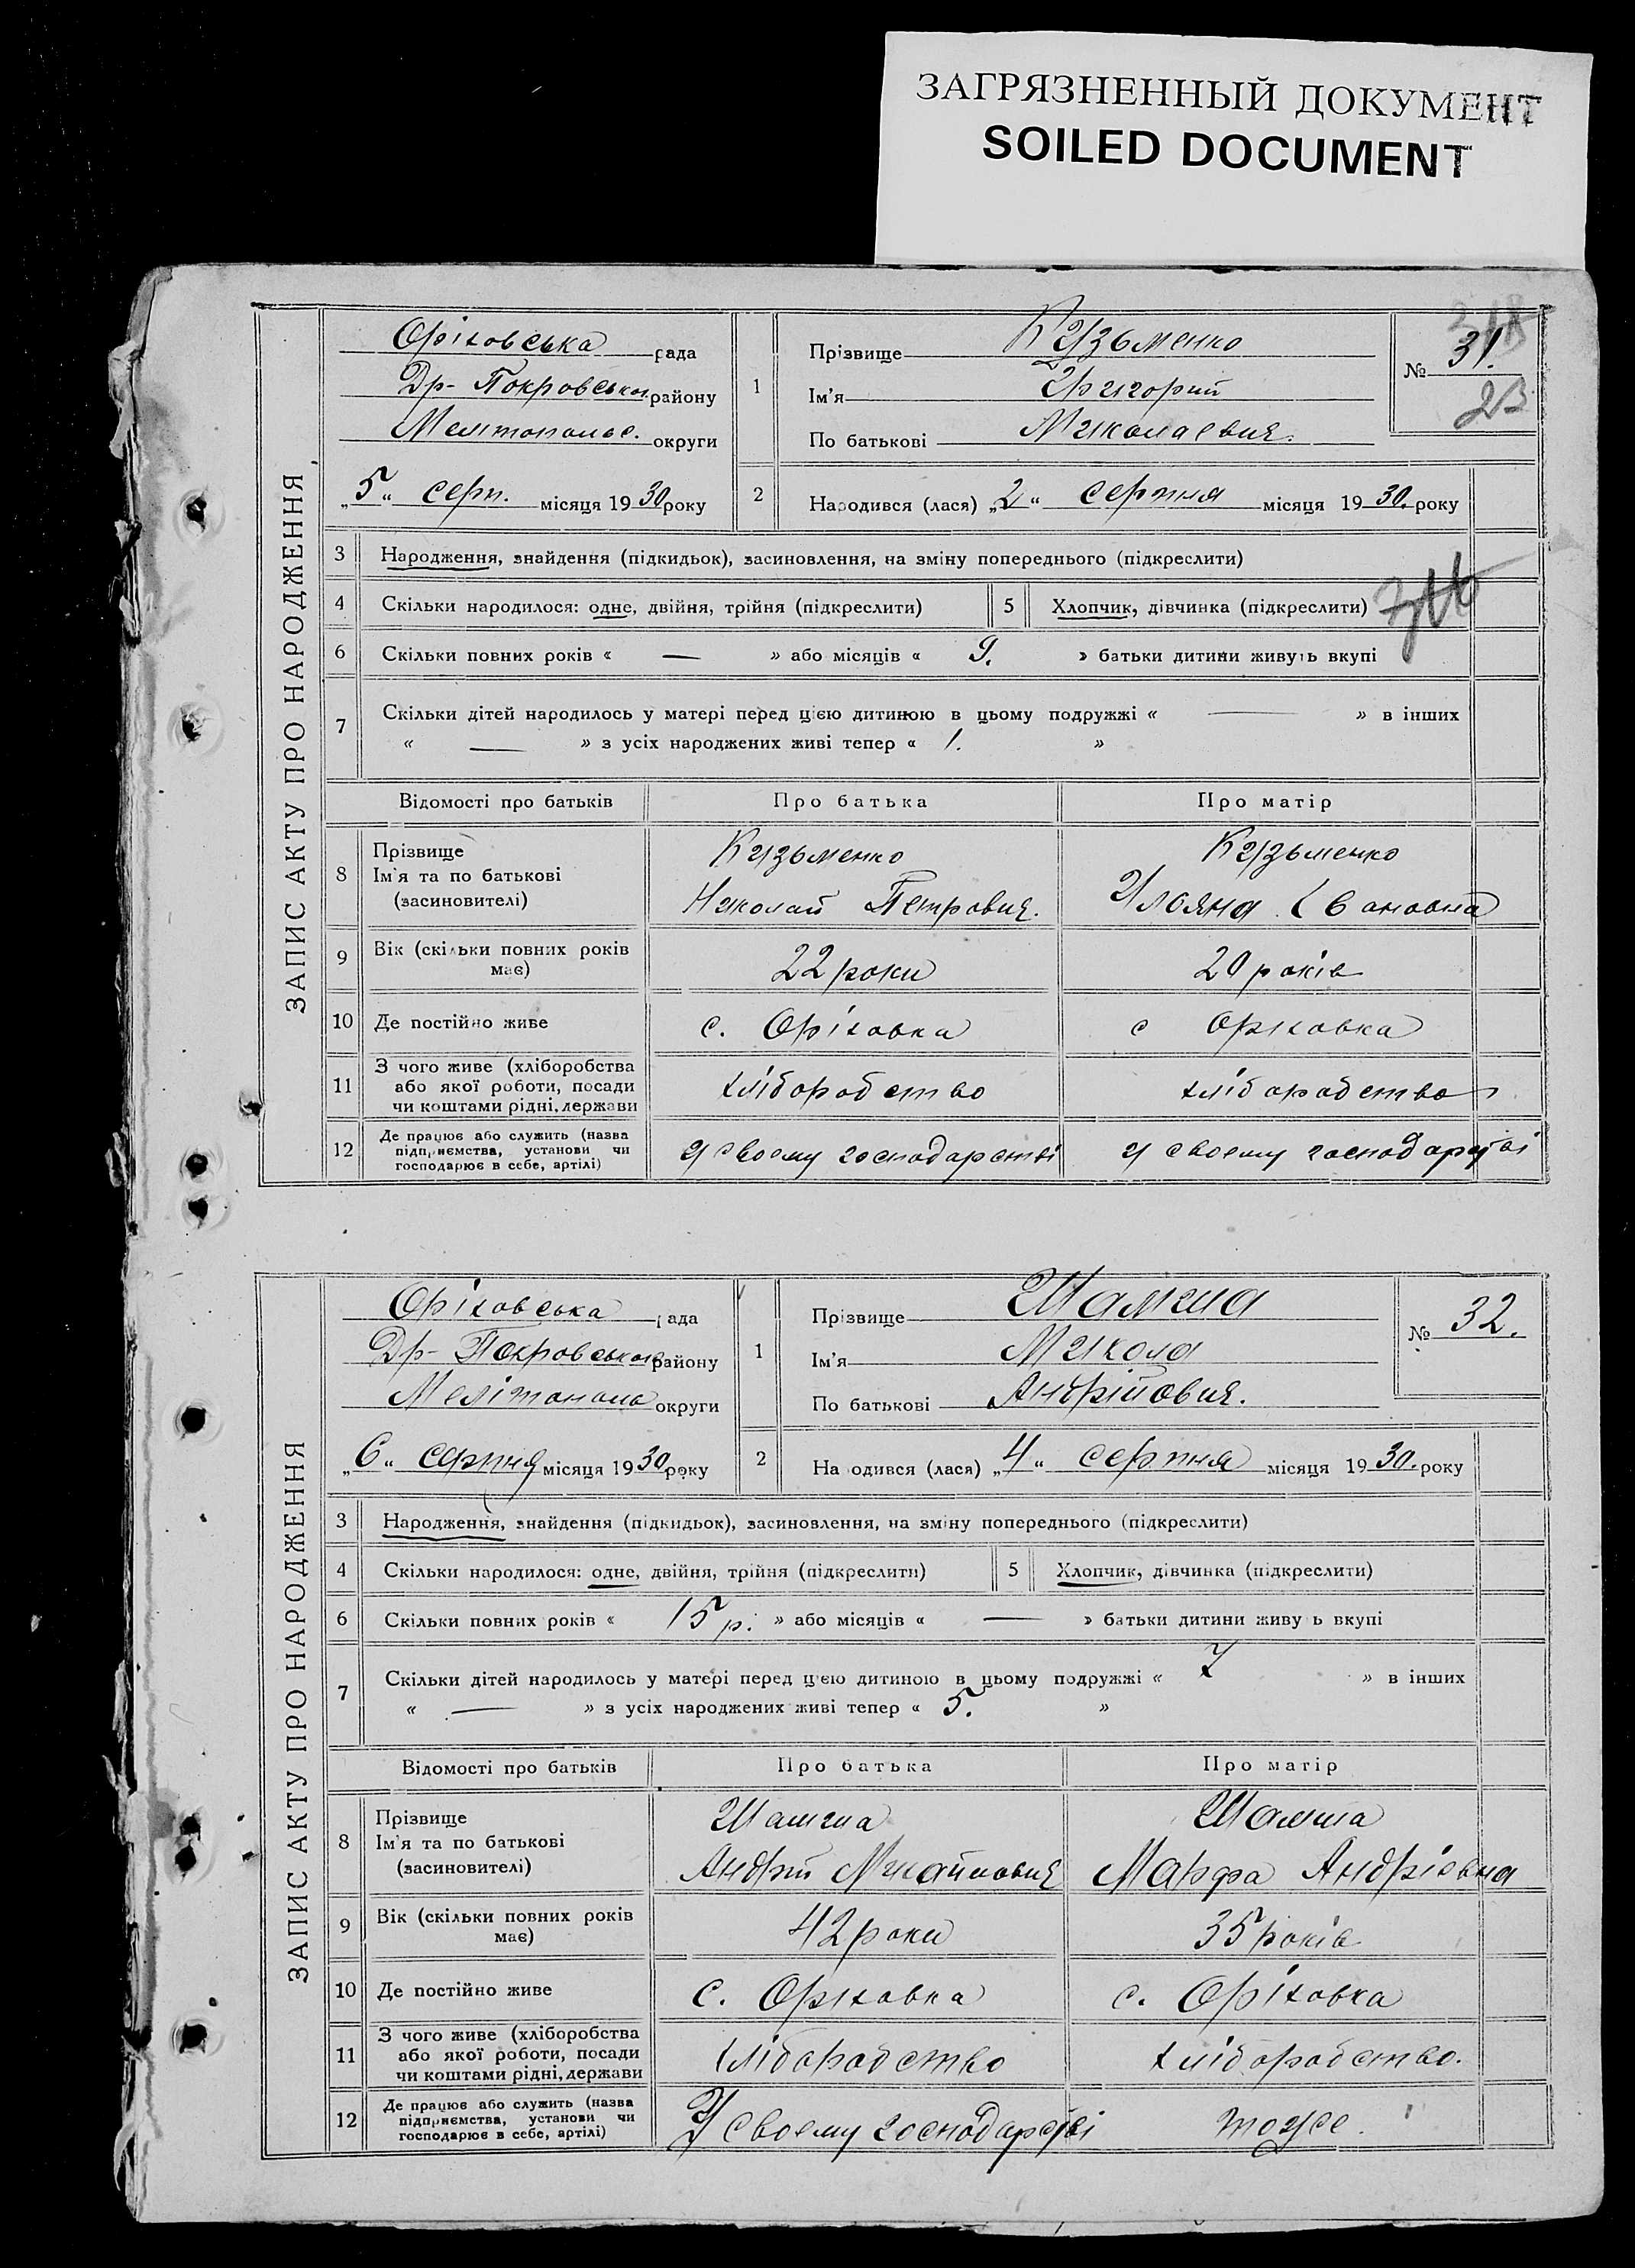 ЗАГРЯЗНЕННЫЙ ДОКУМЕНТ
SOILED DOCUMENT
ЗАПИС АКТУ ПРО НАРОДЖЕННЯ
Оріховська рада
Др-Покровського району
Мелітопольс. округи
„5“ серп. місяця 1930 року
1
Прізвище Кузьменко
Ім'я Григорий
По батькові Миколаевич.
№ 31.
23
2 Народився (лася) „2“ серпня місяця 1930. року
3 Народження, знайдення (підкидьок), засиновлення, на зміну попереднього (підкреслити)
4 Скільки народилося: одне, двійня, трійня (підкреслити) 5 Хлопчик, дівчинка (підкреслити)
6 Скільки повних років « — » або місяців « 9. » батьки дитини живуть вкупі
7 Скільки дітей народилось у матері перед цією дитиною в цьому подружжі « — » в інших
« — » з усіх народжених живі тепер « 1. »
Відомості про батьків Про батька Про матір
8 Прізвище
Ім'я та по батькові
(засновителі)
Кузьменко
Николай Петрович.
Кузьменко
Ульяна Івановна
9 Вік (скільки повних років
має)
22 роки 20 років
10 Де постійно живе с. Оріховка с Оріховка
11 З чого живе (хліборобства
або якої роботи, посади
чи коштами рідні, держави
хліборобство хліборобство
12 Де працює або служить (назва
підприємства, установи чи
господарює в себе, артілі)
у своему господарстві у своему господарстві
ЗАПИС АКТУ ПРО НАРОДЖЕННЯ
Оріховська рада
Др-Покровського району
Мелітополь округи
„6“ серпня місяця 1930 року
1
Прізвище
Ім'я Микола
По батькові Андрійович.
№ 32.
2 Народився (лася) „4“ серпня місяця 1930. року
3 Народження, знайдення (підкидьок), засиновлення, на зміну попереднього (підкреслити)
4 Скільки народилося: одне, двійня, трійня (підкреслити) 5 Хлопчик, дівчинка (підкреслити)
6 Скільки повних років « 15 р. » або місяців « — » батьки дитини живуть вкупі
7 Скільки дітей народилось у матері перед цією дитиною в цьому подружжі « 7 » в інших
« — » з усіх народжених живі тепер « 5. »
Відомості про батьків Про батька Про матір
8 Прізвище
Ім'я та по батькові
(засиновителі)
Андрій Михайлович
Марфа Андріевна
9 Вік (скільки повних років
має)
42 роки 35 років
10 Де постійно живе с. Оріховка с. Оріховка
11 З чого живе (хліборобства
або якої роботи, посади
чи коштами рідні, держави
хліборобство хліборобство.
12 Де працює або служить (назва
підприємства, установи чи
господарює в себе, артілі)
У своему господарстві тоже.